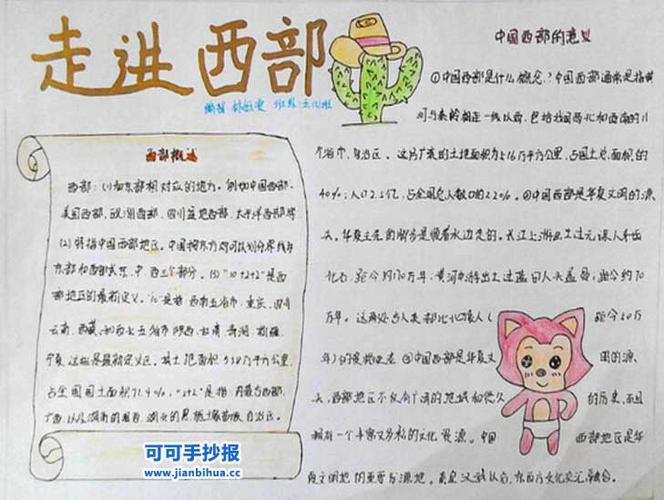 走进西部
编辑 班级
西部概述
西部：(1)和东部相对应的地方。例如中国西部、
美国西部、欧洲西部、四川盆地西部、太平洋西部等
(2) 特指中国西部地区。中国按东方向可以划分界线为
东部和西部或东、中、西三个部分。(3) "10+2+2"是西
部地区的最新定义。"10"是指西南五省市：重庆、四川
云南、西藏、和西北五省市陕西、甘肃、青海、新疆、
宁夏 这些是最新定义区。其土地面积538万平方公里、
占全国国土面积71.4%，"2+2"是指：内蒙古西部、
广西、以及湖南的湘西、湖北的恩施土家苗族自治区。
中国西部的意义
①中国西部是什么概念？中国西部通常是指黄
河与秦岭相连一线以西，包括我国西北和西南的11
个省市、自治区。这片广袤的土地面积为516万平方公里，占国土总面积的
40%；人口2.5亿，占全国总人数口的22%。②中国西部是华夏文明的源
头。华夏文化的脚步是顺着水边走的。长江上游出土过元谋人牙齿
化石，距今约170万年；黄河中游出土过蓝田人头盖骨，距今约70
万年。这两处古人类都比北京人(距今50万
年)的资格还老 ③中国西部是华夏文明的源
头。西部地区不仅有广袤的地域和悠久的历史，而且
拥有一个丰富文多彩的文化资源。中国西部地区是华
夏文明地的重要发源地。秦皇汉武以后，东西方文化交汇融合。
可可手抄报
www.jianbihua.cc